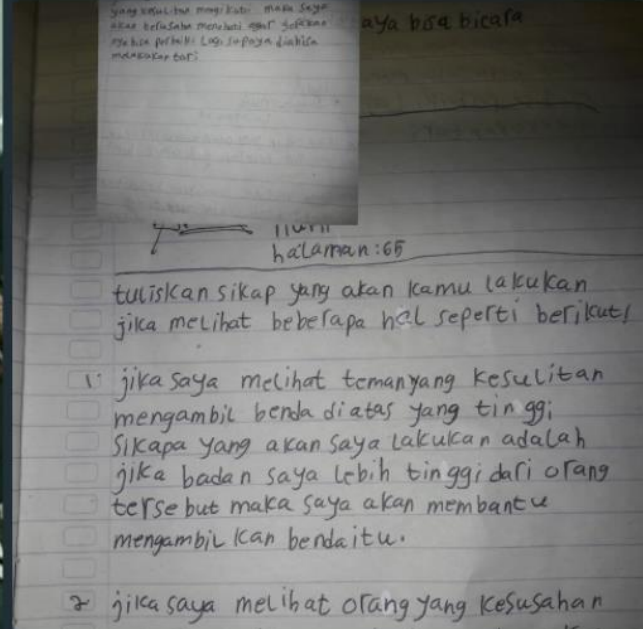 yang kesulitan mengikuti maka saya
akan berusaha menuntun agar gerakan
nya bisa perbaiki lagi supaya dia bisa
melakukan tari
aya bisa bicara
halaman:65
tuliskan sikap yang akan kamu lakukan
jika melihat beberapa hal seperti berikut!
1. jika saya melihat teman yang kesulitan
mengambil benda diatas yang tinggi
Sikapa yang akan saya lakukan adalah
jika badan saya lebih tinggi dari orang
tersebut maka saya akan membantu
mengambil kan benda itu.
2 jika saya melihat orang yang kesusahan